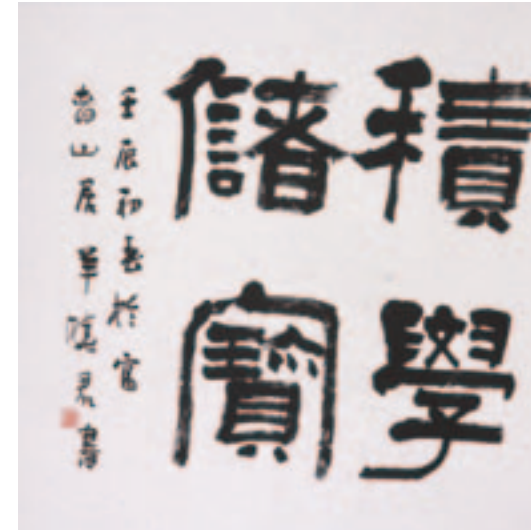 積學
儲寶
壬辰初春於富
春山居書